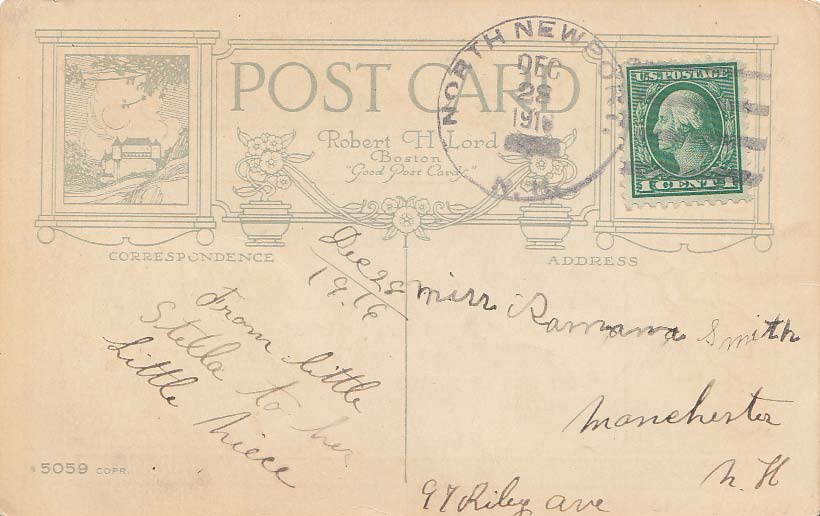 POST CARD
Robert H. Lord
Boston
"Good Post Cards"
NORTH NEWPORT
DEC
28
1916
N.H.
U.S. POSTAGE
1 CENT 1
CORRESPONDENCE
ADDRESS
Dec 28
1916
From little
Stella to her
Little Niece
Miss Ramona Smith
Manchester
N. H
97 Riley ave
5059 COPR.